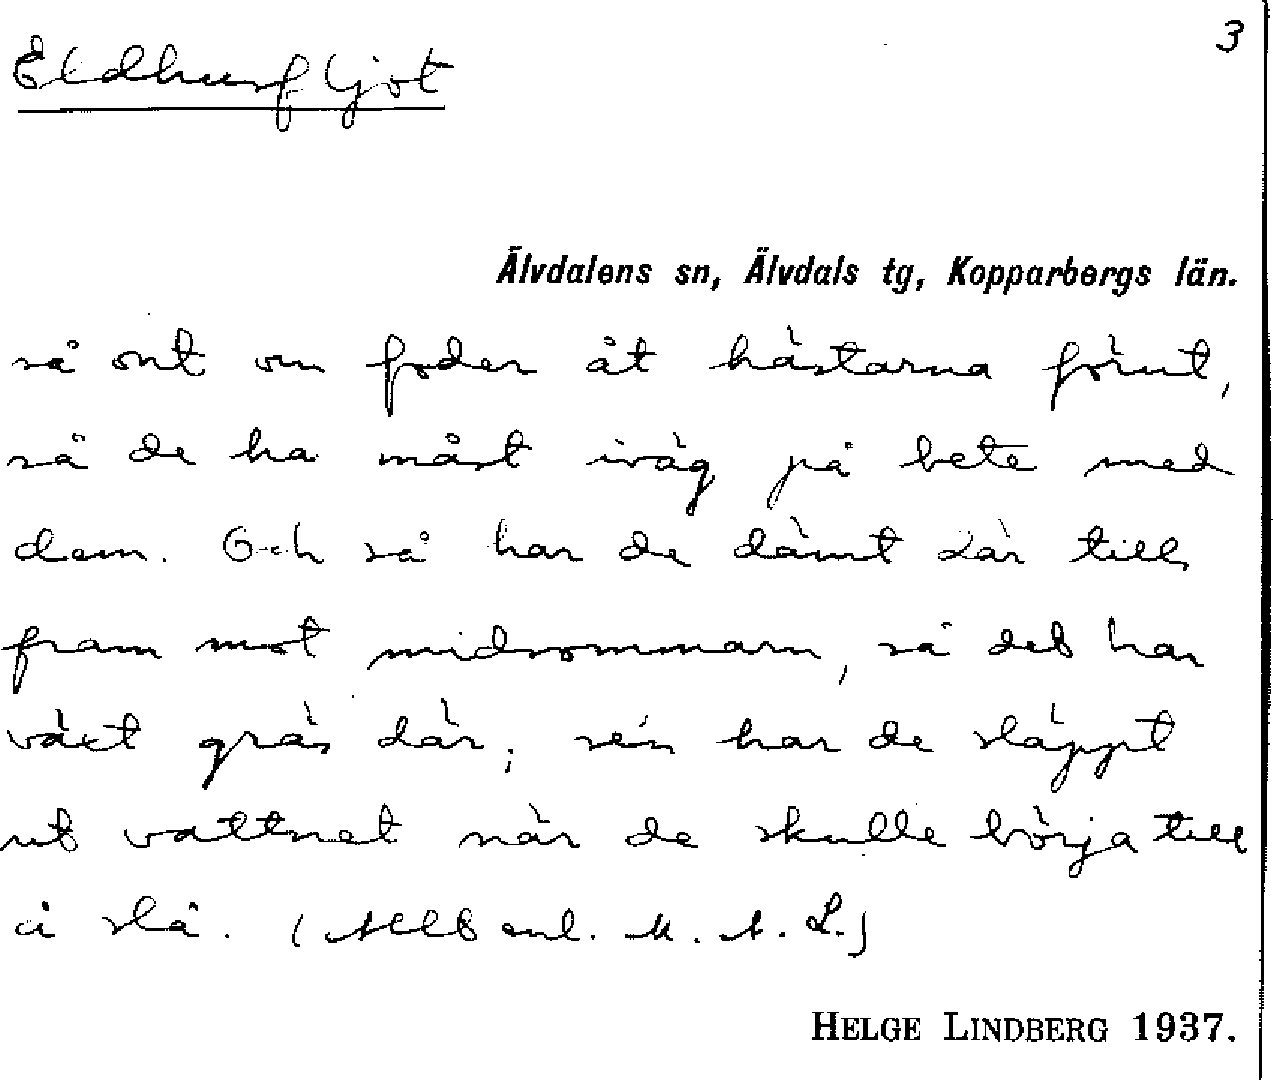 3
Eldhusfljot
Älvdalens sn, Älvdals tg, Kopparbergs län.
så ont om foder åt hästarna förut,
så de ha måst iväg på bete med
dem. Och så har de dämt där till
fram mot midsommarn, så det har
växt gräs där; sén har de släppt
ut vattnet när de skulle börja till
å slå. (Allt enl. M. A. L.)
HELGE LINDBERG 1937.